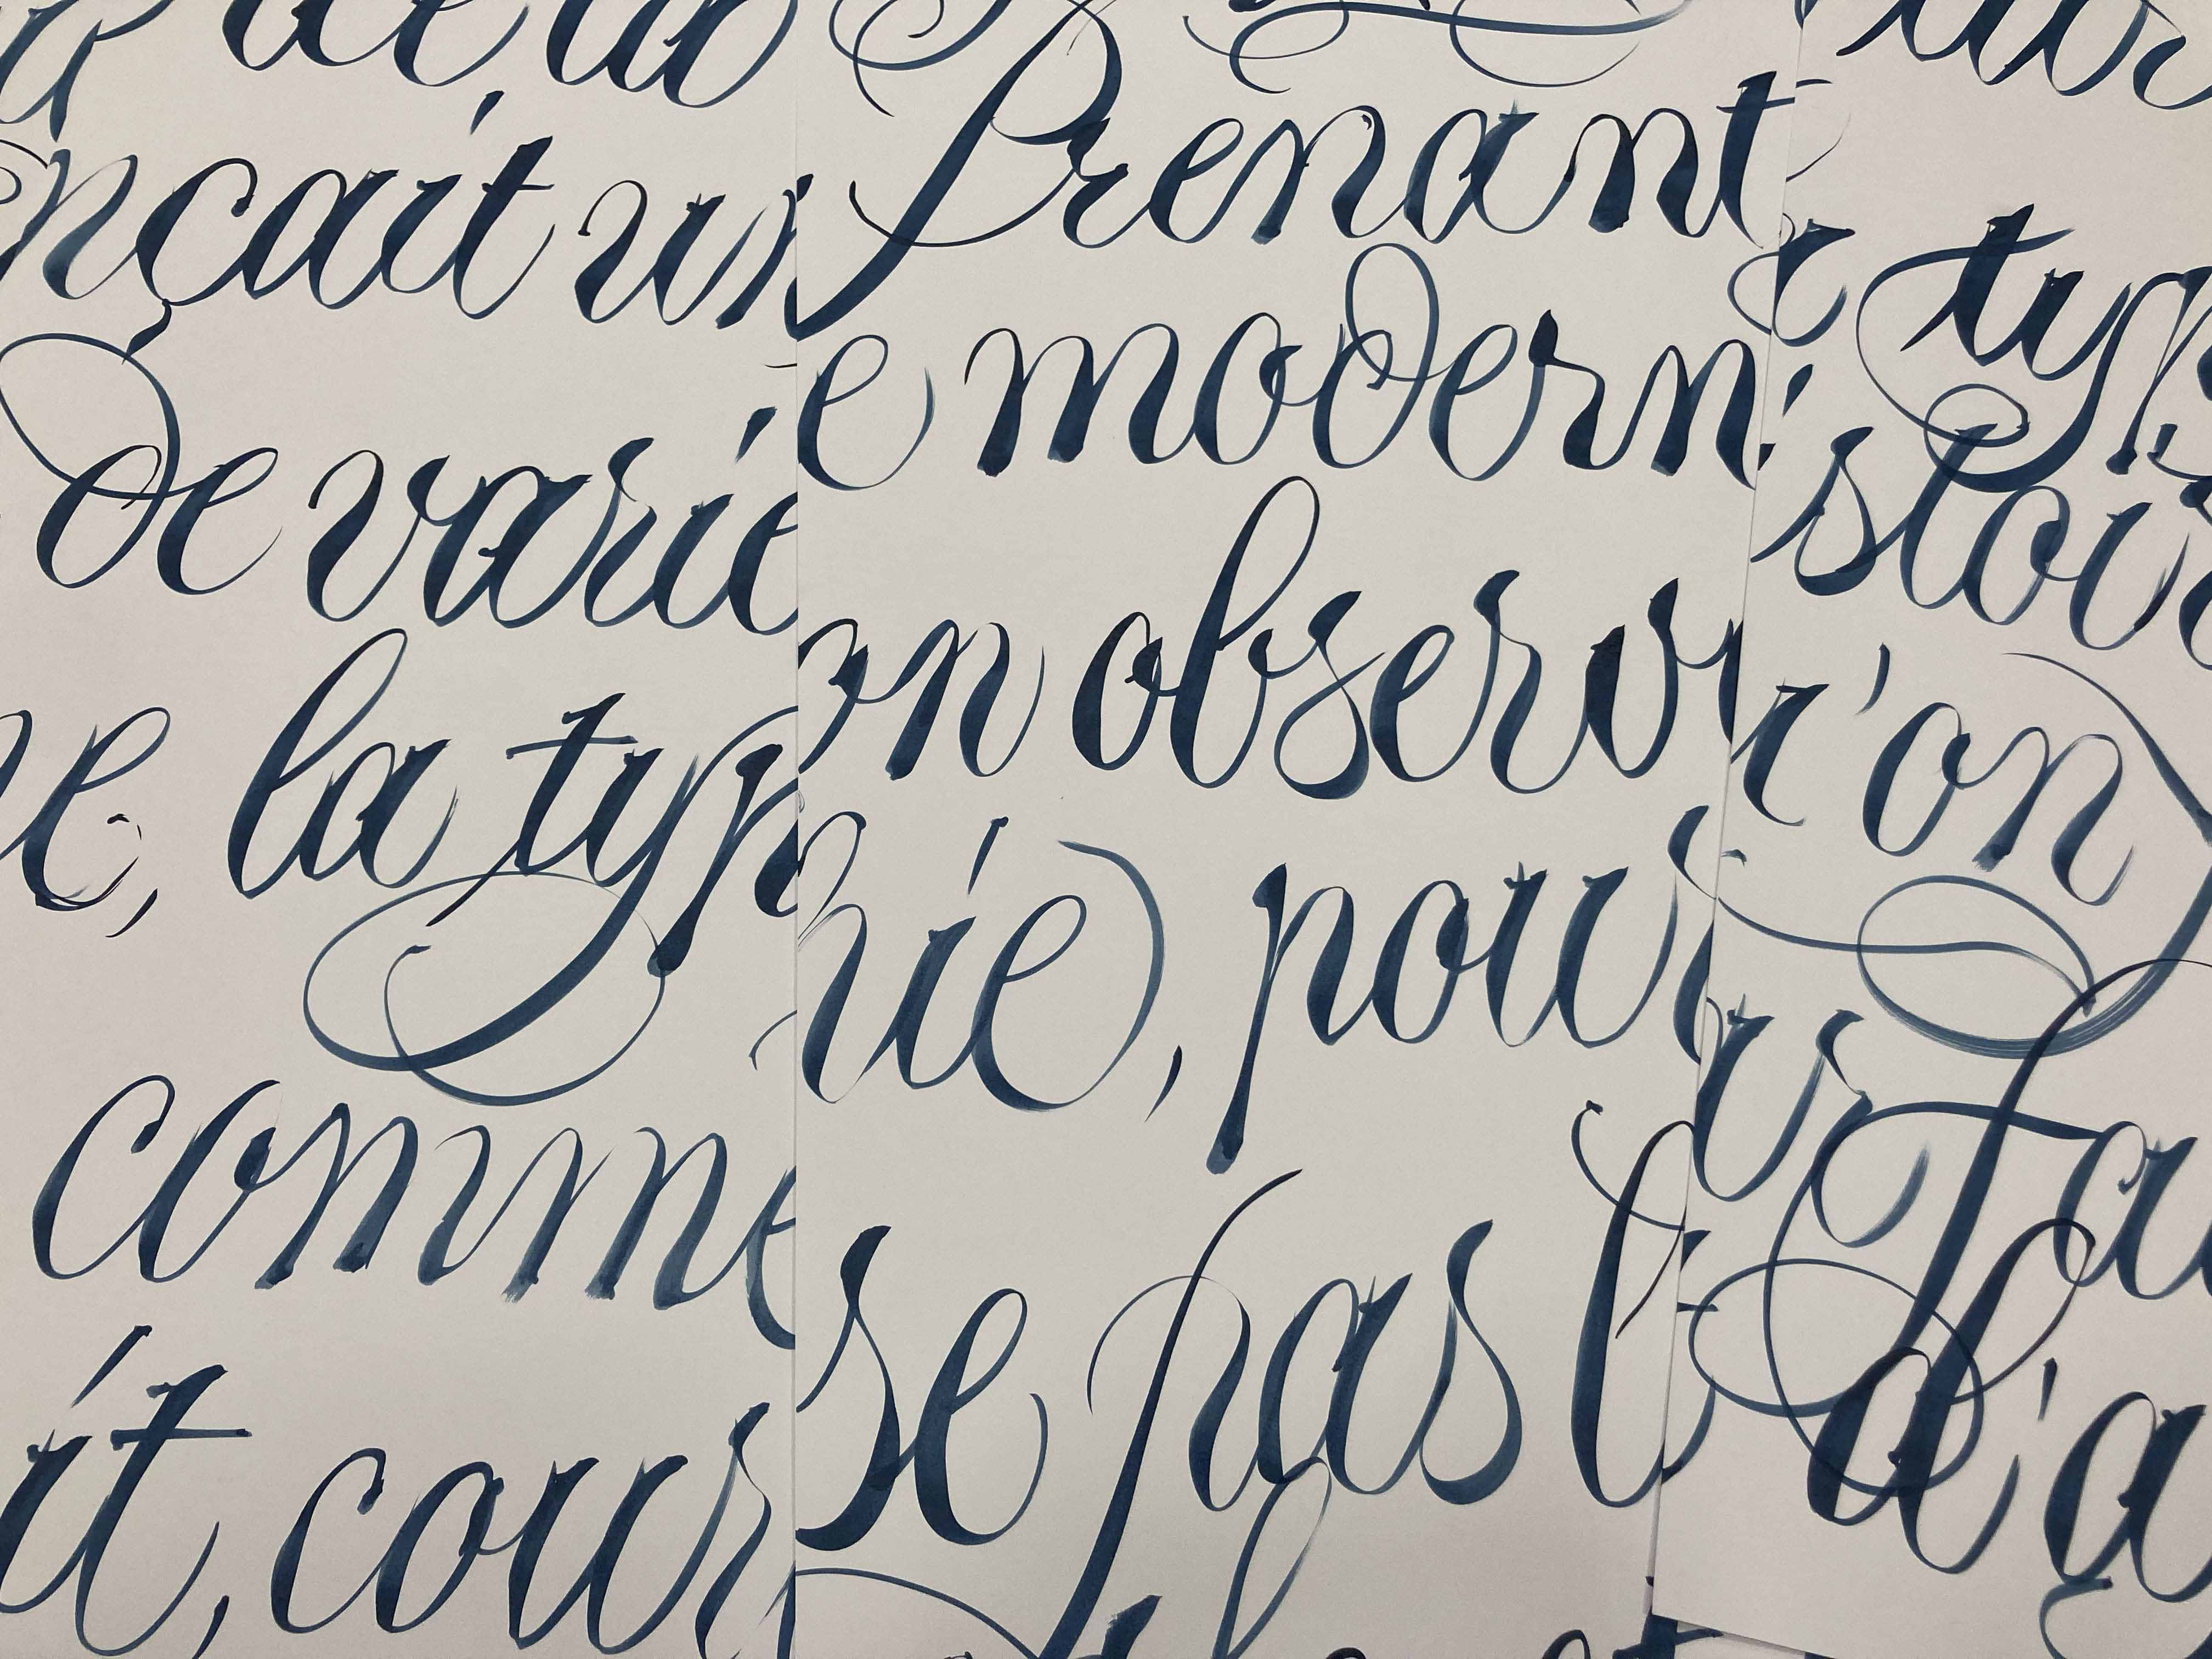 de la
nçait un
de varie
e, la typ
comme
it, cour
Prenant
e modern
on observ
hie), pour
se pas l
typ
slov
r'on
Fa
d'a